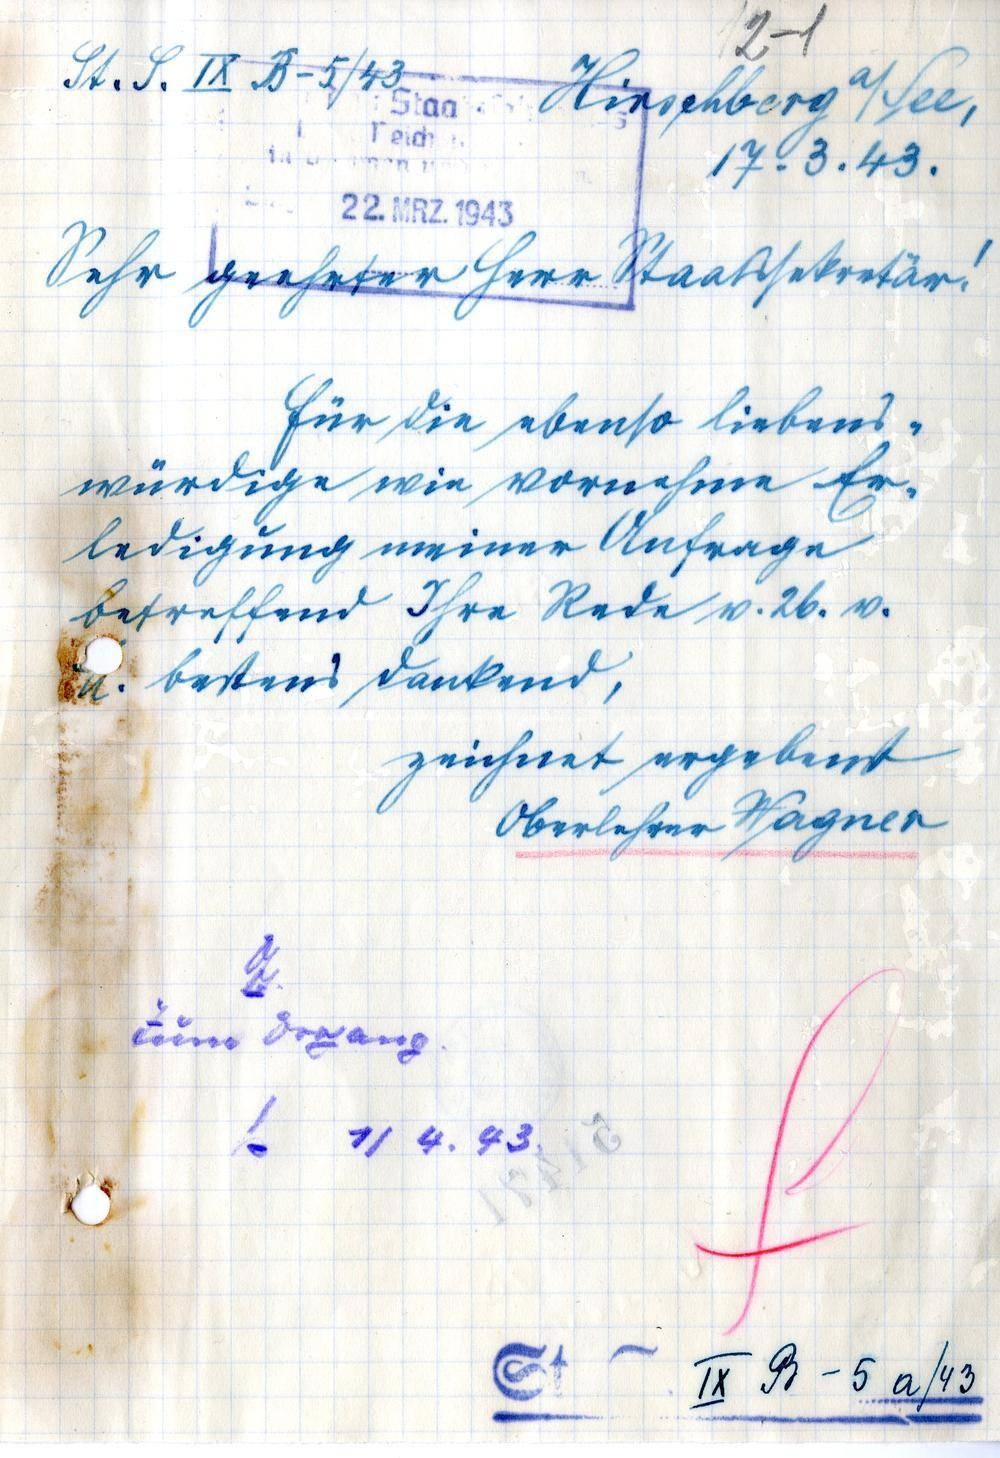 12-1
St. S. IX B-5/43
Hirschberg a/See,
17.3.43.
Staa
Reich
22. MRZ. 1943
Sehr geehrter Herr Staatssekretär!
Für die ebenso liebens-
würdige wie vornehme Er-
ledigung meiner Anfrage
betreffend Ihre Rede v. 26. v.
M. bestens dankend,
zeichnet ergebenst
Oberlehrer Wagner
zum Vorgang.
1/ 4. 43.
St
IX B - 5 a/43